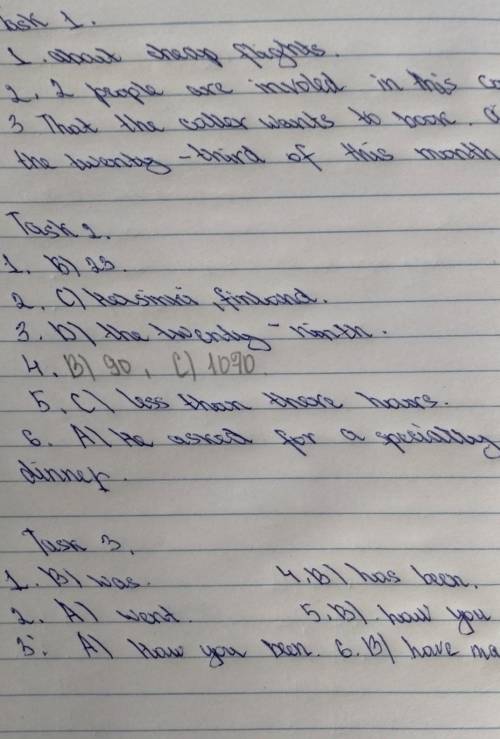 ask 1.
1. about cheap flights.
2. 2 people are involed in this co
3 That the caller wants to book.
the twenty-third of this month
Task 2.
1. B) 23.
2. C) Helsinki, finland.
3. D) the twenty-ninth.
4. B) 90, C) 1070.
5. C) less than there hours.
6. A) He asked for a specially
dinner.
Task 3.
1. B) was. 4. B) has been.
2. A) went. 5. B). how you
3. A) How you been. 6. B) have ma